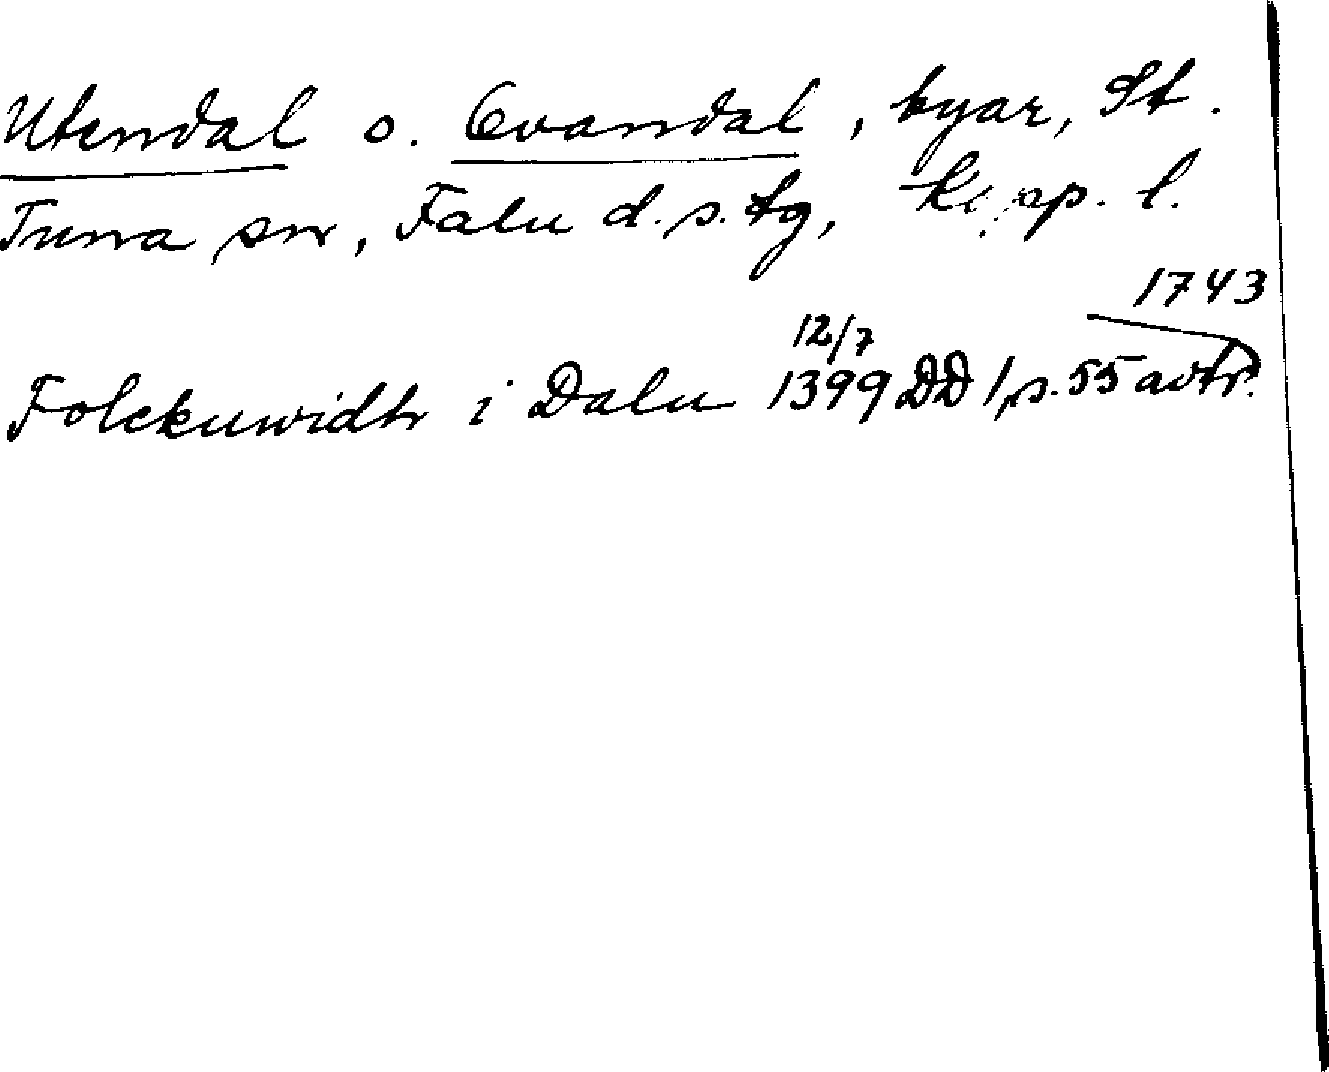 Utendal o. Ovandal, byar, St.
Tuna sn, Falu d. s. tg, Kopp. l.
1743
12/7
Folckuwidh i Dalu 1399 DD 1, s. 55 avtr.